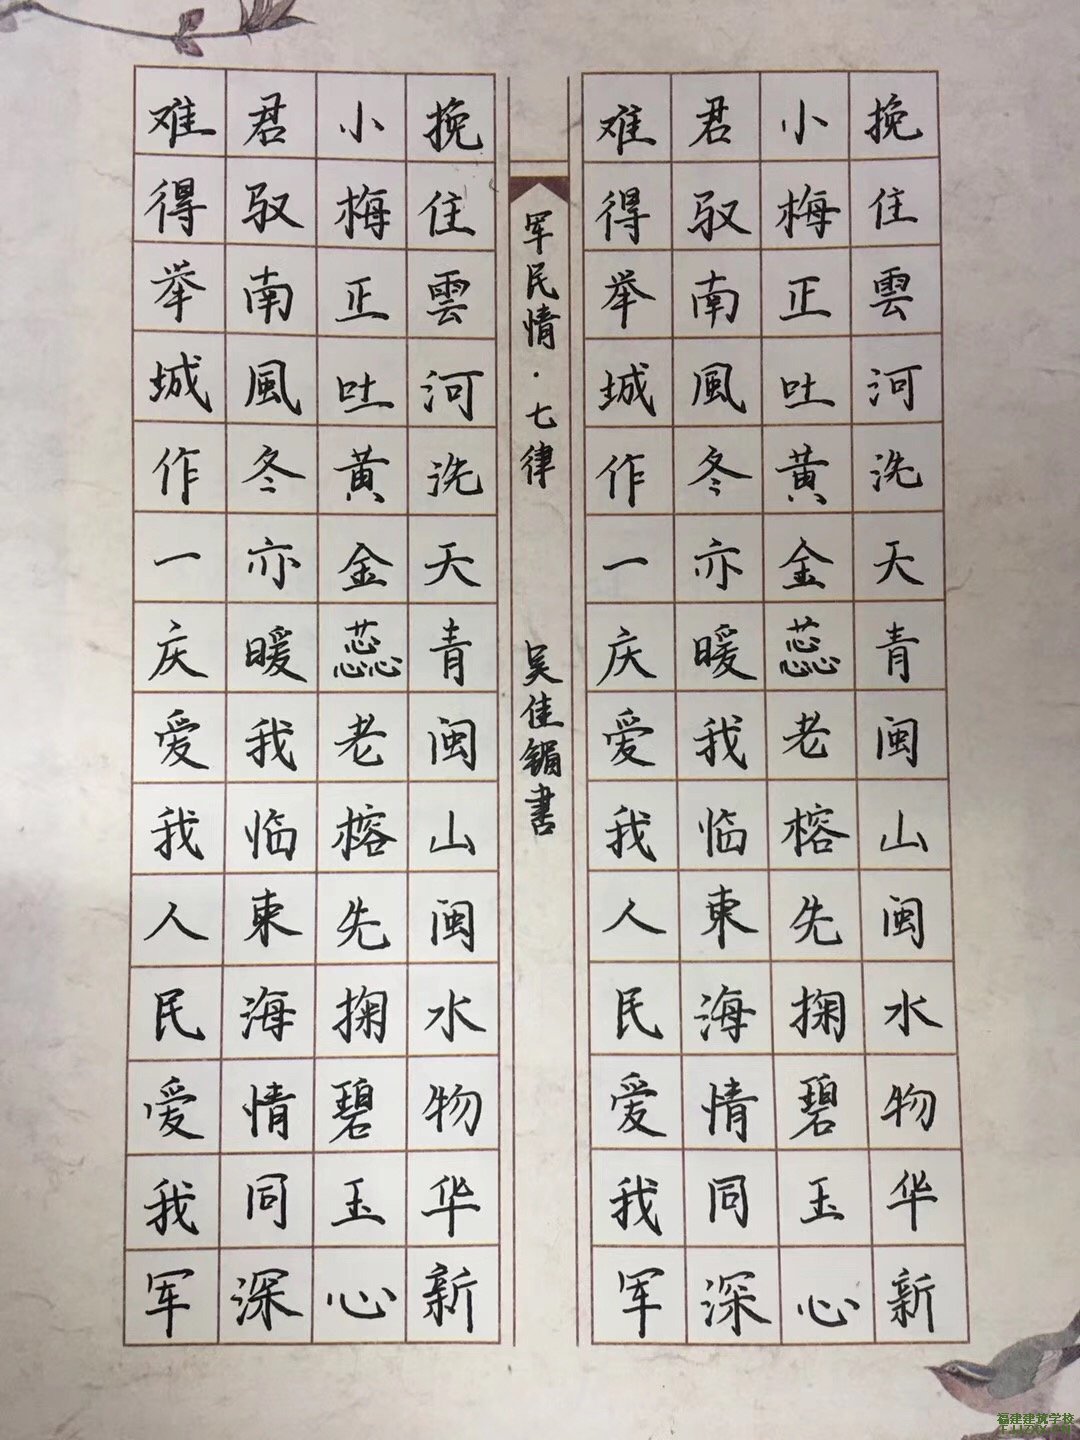 挽住雲河洗天青闽山闽水物华新
小梅正吐黄金蕊老榕先掬碧玉心
君驭南風冬亦暖我临東海情同深
难得举城作一庆爱我人民爱我军
军民情·七律
吴佳鋗書
挽住雲河洗天青闽山闽水物华新
小梅正吐黄金蕊老榕先掬碧玉心
君驭南風冬亦暖我临東海情同深
难得举城作一庆爱我人民爱我军
福建建筑学校